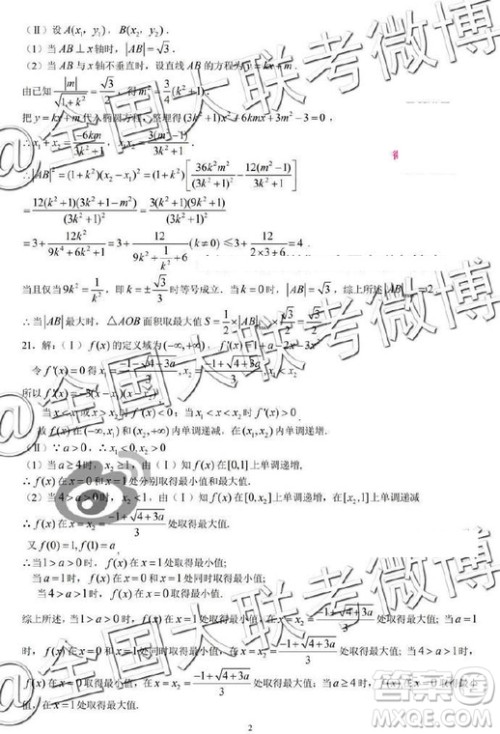 (Ⅱ)设 A(x₁, y₁), B(x₂, y₂).
(1)当 AB⊥x轴时, |AB|=√3.
(2)当 AB 与 x 轴不垂直时, 设直线 AB 的方程为 y=kx+m.
由已知 |m|/√(1+k²)=√3/2, 得 m²=3/4(k²+1).
把 y=kx+m 代入椭圆方程, 整理得(3k²+1)x²+6kmx+3m²-3=0,
∴x₁+x₂=-6km/(3k²+1)
∴|AB|²=(1+k²)(x₂-x₁)²=(1+k²)[36k²m²/(3k²+1)²-12(m²-1)/(3k²+1)]
=12(k²+1)(3k²+1-m²)/(3k²+1)²=3(k²+1)(9k²+1)/(3k²+1)²
=3+12k²/(9k⁴+6k²+1)=3+12/(9k²+1/k²+6)(k≠0)≤3+12/(2×3+6)=4.
当且仅当9k²=1/k², 即k=±√3/3时等号成立. 当k=0时, |AB|=√3, 综上所述|AB|=2
∴当|AB|最大时, △AOB面积取最大值S=1/2×
21.解:(Ⅰ) f(x)的定义域为(-∞,+∞), f'(x)=1+a-2x-3x²
令 f'(x)=0得
所以f'(x)=-3(x-x₁)(x-x₂),
当x<x₁或x>x₂时 f'(x)<0; 当x₁<x<x₂时f'(x)>0.
故 f(x)在(-∞,x₁)和 内单调递减, 在(x₁,x₂)内单调递增.
(Ⅱ)∵a>0, ∴x₁<0,x₂>0
(1)当a≥4时, x₂≥1, 由(Ⅰ)知 f(x)在[0,1]上单调递增,
∴f(x)在x=0和x=1处分别取得最小值和最大值.
(2)当4>a>0时, x₂<1, 由(Ⅰ)知 f(x)在[0,x₂]上单调递增, 在[x₂,1]上单调递减
∴f(x)在x=x₂=(-1+√(4+3a))/3处取得最大值.
又f(0)=1,f(1)=a,
∴当1>a>0时, f(x)在x=1处取得最小值;
当a=1时, f(x)在x=0和x=1处同时取得最小值;
当4>a>1时, f(x)在x=0处取得最小值.
综上所述, 当1>a>0时, f(x)在x=1处取得最小值, 在x=x₂=(-1+√(4+3a))/3处取得最大值; 当a=1
时, f(x)在x=0和x=1处同时取得最小值, 在x=x₂=(-1+√(4+3a))/3处取得最大值; 当4>a>1时,
f(x)在x=0处取得最小值, 在x=x₂=(-1+√(4+3a))/3处取得最大值; 当a≥4时, f(x)在x=0处取得最
小值, 在x=1处取得最大值.
2
@全国大联考微博
@全国大联考微博
@全国大联考微博
答案圈
MXQE.COM